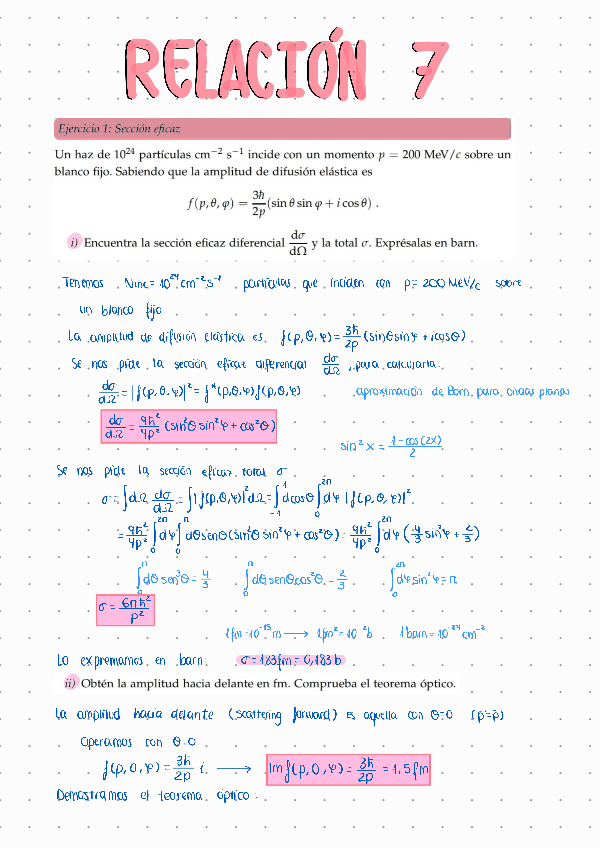 RELACIÓN 7
Ejercicio 1: Sección eficaz
Un haz de 10²⁴ partículas cm⁻² s⁻¹ incide con un momento p = 200 MeV/c sobre un
blanco fijo. Sabiendo que la amplitud de difusión elástica es
f(p, θ, φ) = 3ħ/2p (sin θ sin φ + i cos θ) .
i) Encuentra la sección eficaz diferencial dσ/dΩ y la total σ. Exprésalas en barn.
Tenemos Ninc = 10²⁴ cm⁻² s⁻¹ partículas que inciden con p = 200 MeV/c sobre
un blanco fijo.
La amplitud de difusión elástica es f(p, θ, φ) = 3ħ/2p (sinθsinφ + icosθ).
Se nos pide la sección eficaz diferencial dσ/dΩ, para calcularla:
dσ/dΩ = |f(p, θ, φ)|² = f*(p, θ, φ) f(p, θ, φ) aproximación de Born para ondas planas
dσ/dΩ = 9ħ²/4p² (sin²θ sin²φ + cos²θ)
sin²x = 1-cos(2x)/2
Se nos pide la sección eficaz total σ
σ = ∫dΩ dσ/dΩ = ∫|f(p, θ, φ)|² dΩ = ∫₋₁¹ dcosθ ∫₀²π dφ |f(p, θ, φ)|²
= 9ħ²/4p² ∫₀²π dφ ∫₀π dθ senθ (sin²θ sin²φ + cos²θ) = 9ħ²/4p² ∫₀²π dφ (4/3 sin²φ + 2/3)
∫₀π dθ sen³θ = 4/3 ∫₀π dθ senθ cos²θ = 2/3 ∫₀²π dφ sin²φ = π
σ = 6πħ²/p²
1fm = 10⁻¹⁵m → 1fm² = 10⁻²b 1barn = 10⁻²⁴ cm⁻²
Lo expresamos en barn: σ = 18,3fm = 0,183 b
ii) Obtén la amplitud hacia delante en fm. Comprueba el teorema óptico.
La amplitud hacia delante (scattering forward) es aquella con θ=0 (p=p)
Operamos con θ=0
f(p, 0, φ) = 3ħ/2p i → Im f(p, 0, φ) = 3ħ/2p = 1,5 fm
Demostramos el teorema óptico: